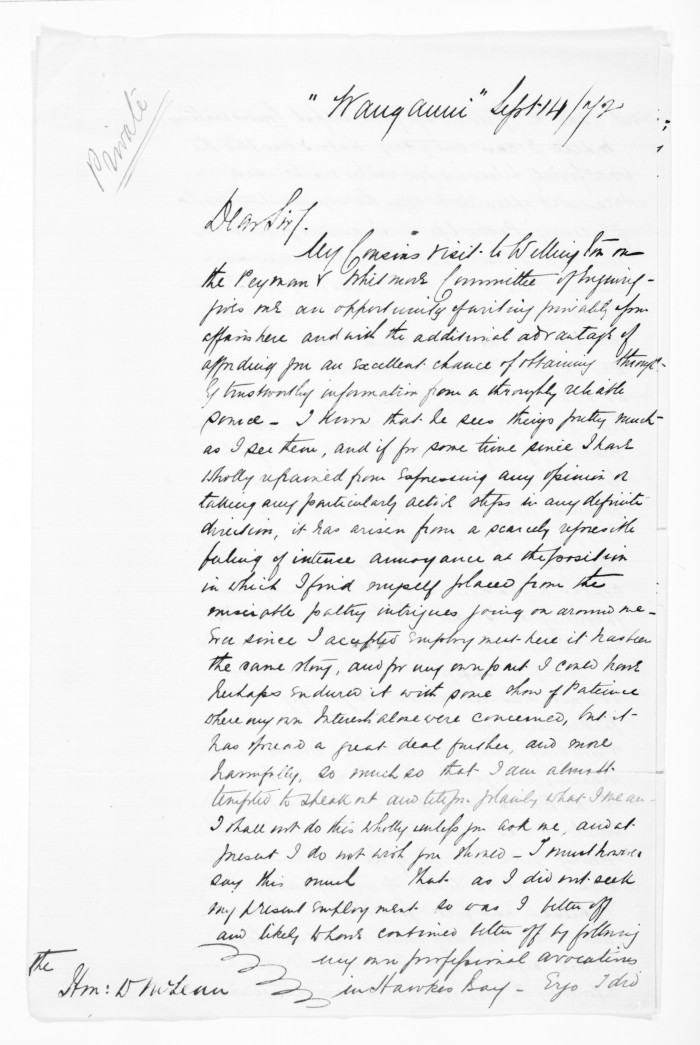 Private
"Wanganui" Sept. 14/72
Dear Sir/.
My Cousins visit to Wellington on
the & Whitmore Committee of Enquiry -
gives me an opportunity of writing privately upon
affairs here and with the additional advantage of
affording you an excellent chance of obtaining through-
ly trustworthy information from a throughly reliable
source - I know that he sees things pretty much
as I see them, and if for some time since I have
wholly refrained from expressing any opinion or
taking any particularly active steps in any definite
direction, it has arisen from a scarcely
feeling of intense annoyance at the position
in which I find myself placed from the
miserable paltry intrigues going on around me -
Ever since I accepted employment here it has been
the same story, and for my own part I could have
perhaps endured it with some show of Patience
where my own Interest alone were concerned, but it
has spread a great deal further, and more
harmfully, so much so that I am almost
tempted to speak out and tell you plainly what I mean -
I shall not do this wholly unless you ask me, and at
present I do not wish you should - I must however
say this much That as I did not seek
my present employment so was I better off
and likely to have continued better off by following
my own professional avocations
in Hawkes Bay - Ergo I did
the
Hon: D McLean